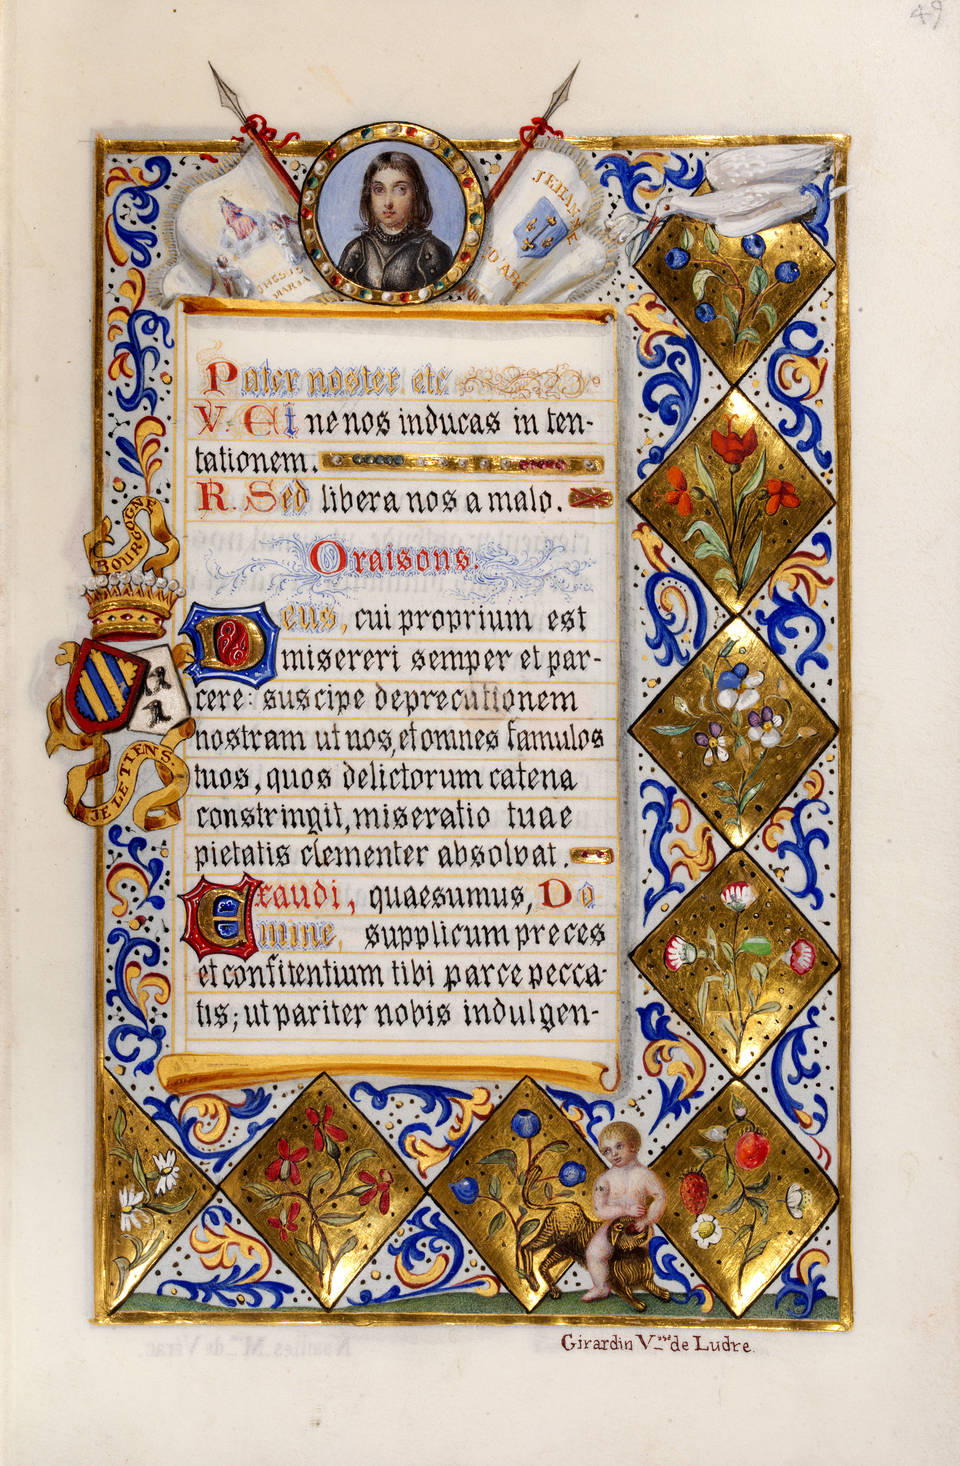 49
JHESUS
MARIA
JEHANNE
D'ARC
Pater noster etc
V. Et ne nos inducas in ten-
tationem.
R. Sed libera nos a malo.
Oraisons.
BOURGOGNE
Deus, cui proprium est
misereri semper et par-
cere: suscipe deprecationem
nostram ut nos, et omnes famulos
tuos, quos delictorum catena
constringit, miseratio tuae
pietatis clementer absolvat.
JE LE TIENS.
Exaudi, quaesumus, Do
mine, supplicum preces
et confitentium tibi parce pecca-
tis; ut pariter nobis indulgen-
Girardin V.sse de Ludre.